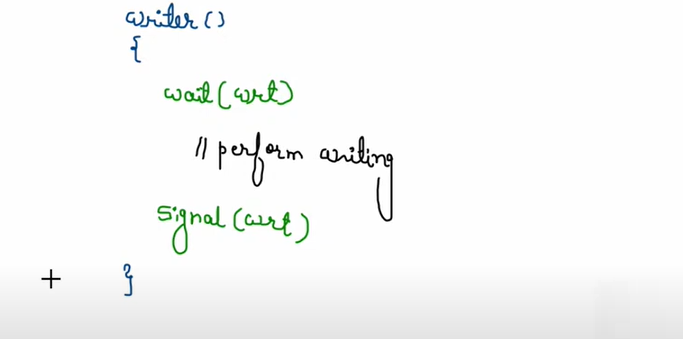 writer()
{
wait(wrt)
// perform writing
signal(wrt)
}